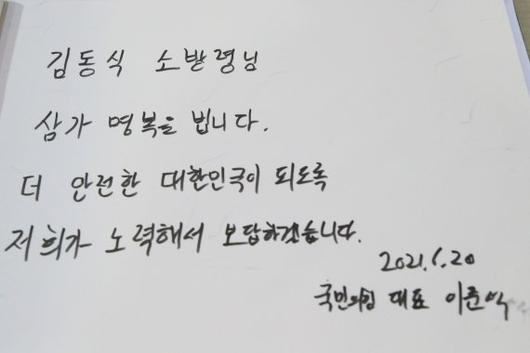 김동식 소방령님
삼가 명복을 빕니다.
더 안전한 대한민국이 되도록
저희가 노력해서 보답하겠습니다.
2021.6.20
국민의힘 대표 이준석